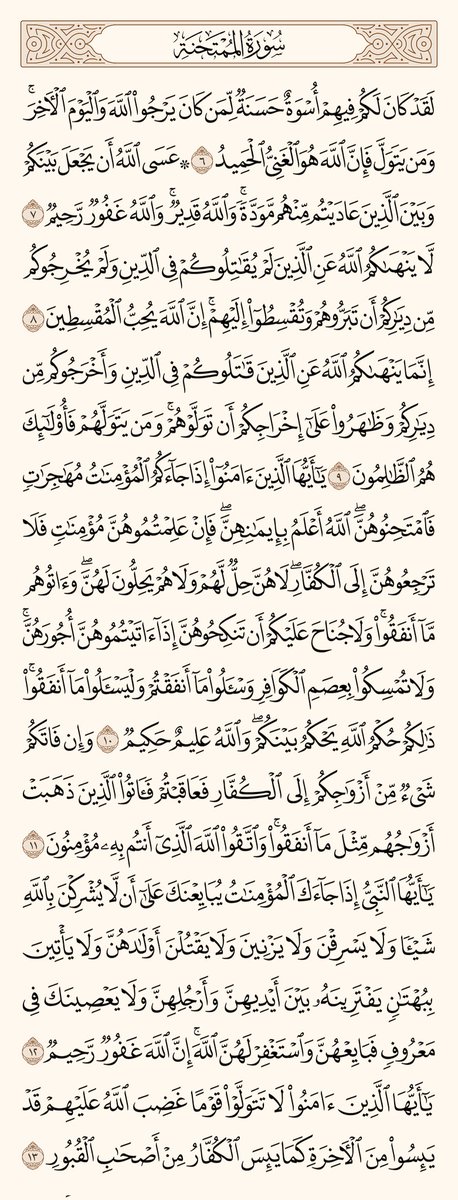 سُورَةُ المُمْتَحنَةِ
لَقَدْ كَانَ لَكُمْ فِيهِمْ أُسْوَةٌ حَسَنَةٌ لِّمَن كَانَ يَرْجُوا۟ ٱللَّهَ وَٱلْيَوْمَ ٱلْـَٔاخِرَ ۚ
وَمَن يَتَوَلَّ فَإِنَّ ٱللَّهَ هُوَ ٱلْغَنِىُّ ٱلْحَمِيدُ ٦ ۞ عَسَى ٱللَّهُ أَن يَجْعَلَ بَيْنَكُمْ
وَبَيْنَ ٱلَّذِينَ عَادَيْتُم مِّنْهُم مَّوَدَّةً ۚ وَٱللَّهُ قَدِيرٌ ۚ وَٱللَّهُ غَفُورٌ رَّحِيمٌ ٧
لَّا يَنْهَىٰكُمُ ٱللَّهُ عَنِ ٱلَّذِينَ لَمْ يُقَٰتِلُوكُمْ فِى ٱلدِّينِ وَلَمْ يُخْرِجُوكُم
مِّن دِيَٰرِكُمْ أَن تَبَرُّوهُمْ وَتُقْسِطُوٓا۟ إِلَيْهِمْ ۚ إِنَّ ٱللَّهَ يُحِبُّ ٱلْمُقْسِطِينَ ٨
إِنَّمَا يَنْهَىٰكُمُ ٱللَّهُ عَنِ ٱلَّذِينَ قَٰتَلُوكُمْ فِى ٱلدِّينِ وَأَخْرَجُوكُم مِّن
دِيَٰرِكُمْ وَظَٰهَرُوا۟ عَلَىٰٓ إِخْرَاجِكُمْ أَن تَوَلَّوْهُمْ ۚ وَمَن يَتَوَلَّهُمْ فَأُو۟لَٰٓئِكَ
هُمُ ٱلظَّٰلِمُونَ ٩ يَٰٓأَيُّهَا ٱلَّذِينَ ءَامَنُوٓا۟ إِذَا جَآءَكُمُ ٱلْمُؤْمِنَٰتُ مُهَٰجِرَٰتٍ
فَٱمْتَحِنُوهُنَّ ۖ ٱللَّهُ أَعْلَمُ بِإِيمَٰنِهِنَّ ۖ فَإِنْ عَلِمْتُمُوهُنَّ مُؤْمِنَٰتٍ فَلَا
تَرْجِعُوهُنَّ إِلَى ٱلْكُفَّارِ ۖ لَا هُنَّ حِلٌّ لَّهُمْ وَلَا هُمْ يَحِلُّونَ لَهُنَّ ۖ وَءَاتُوهُم
مَّآ أَنفَقُوا۟ ۚ وَلَا جُنَاحَ عَلَيْكُمْ أَن تَنكِحُوهُنَّ إِذَآ ءَاتَيْتُمُوهُنَّ أُجُورَهُنَّ ۚ
وَلَا تُمْسِكُوا۟ بِعِصَمِ ٱلْكَوَافِرِ وَسْـَٔلُوا۟ مَآ أَنفَقْتُمْ وَلْيَسْـَٔلُوا۟ مَآ أَنفَقُوا۟ ۚ
ذَٰلِكُمْ حُكْمُ ٱللَّهِ يَحْكُمُ بَيْنَكُمْ ۖ وَٱللَّهُ عَلِيمٌ حَكِيمٌ ١٠ وَإِن فَاتَكُمْ
شَىْءٌ مِّنْ أَزْوَٰجِكُمْ إِلَى ٱلْكُفَّارِ فَعَاقَبْتُمْ فَـَٔاتُوا۟ ٱلَّذِينَ ذَهَبَتْ
أَزْوَٰجُهُم مِّثْلَ مَآ أَنفَقُوا۟ ۚ وَٱتَّقُوا۟ ٱللَّهَ ٱلَّذِىٓ أَنتُم بِهِۦ مُؤْمِنُونَ ١١
يَٰٓأَيُّهَا ٱلنَّبِىُّ إِذَا جَآءَكَ ٱلْمُؤْمِنَٰتُ يُبَايِعْنَكَ عَلَىٰٓ أَن لَّا يُشْرِكْنَ بِٱللَّهِ
شَيْـًٔا وَلَا يَسْرِقْنَ وَلَا يَزْنِينَ وَلَا يَقْتُلْنَ أَوْلَٰدَهُنَّ وَلَا يَأْتِينَ
بِبُهْتَٰنٍ يَفْتَرِينَهُۥ بَيْنَ أَيْدِيهِنَّ وَأَرْجُلِهِنَّ وَلَا يَعْصِينَكَ فِى
مَعْرُوفٍ فَبَايِعْهُنَّ وَٱسْتَغْفِرْ لَهُنَّ ٱللَّهَ ۚ إِنَّ ٱللَّهَ غَفُورٌ رَّحِيمٌ ١٢
يَٰٓأَيُّهَا ٱلَّذِينَ ءَامَنُوا۟ لَا تَتَوَلَّوْا۟ قَوْمًا غَضِبَ ٱللَّهُ عَلَيْهِمْ قَدْ
يَئِسُوا۟ مِنَ ٱلْـَٔاخِرَةِ كَمَا يَئِسَ ٱلْكُفَّارُ مِنْ أَصْحَٰبِ ٱلْقُبُورِ ١٣